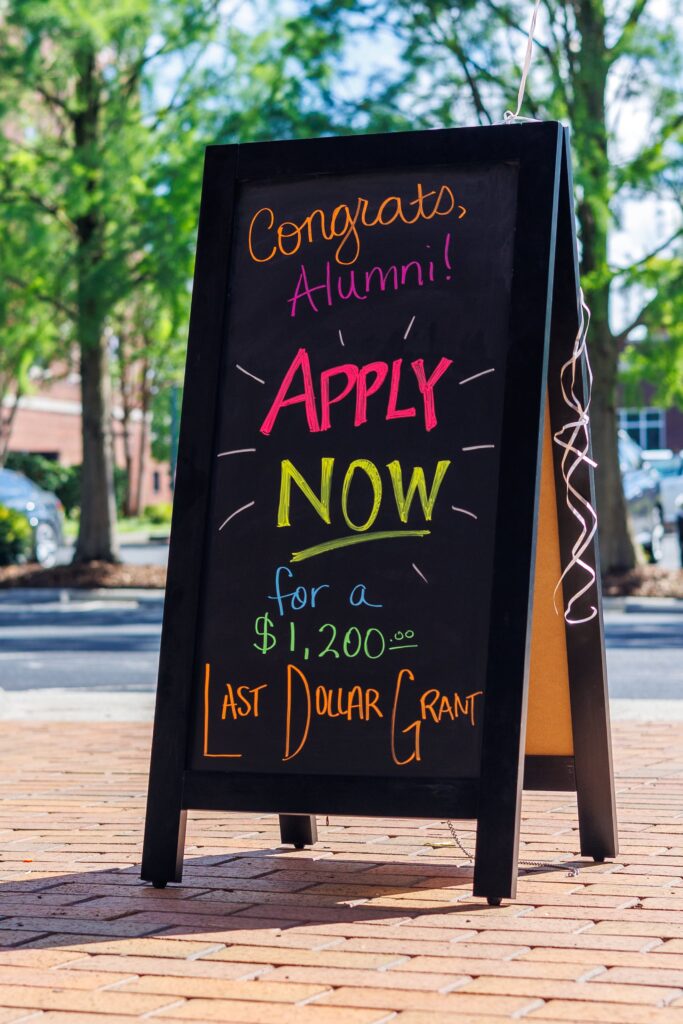 Congrats,
Alumni!
APPLY
NOW
for a
$1,200.00
LAST DOLLAR GRANT